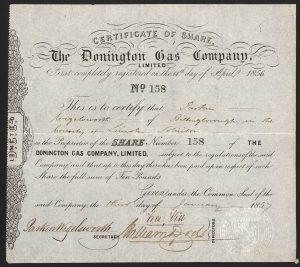 CERTIFICATE OF SHARE.
The Donington Gas Company,
LIMITED
First completely registered on the 11th day of April 1856
No 158
This is to certify that Parkin
Wigelsworth of Billingborough in the
County of Lincoln Solicitor
is the Proprietor of the SHARE Number 158 of THE
DONINGTON GAS COMPANY, LIMITED, subject to the regulations of the said
Company and that up to this day there has been paid up in respect of such
Share the full sum of Ten Pounds
Given under the Common Seal of the
said Company, the third day of January 1857
Parkin Wigelsworth
SECRETARY
William Dods
DIRECTORS